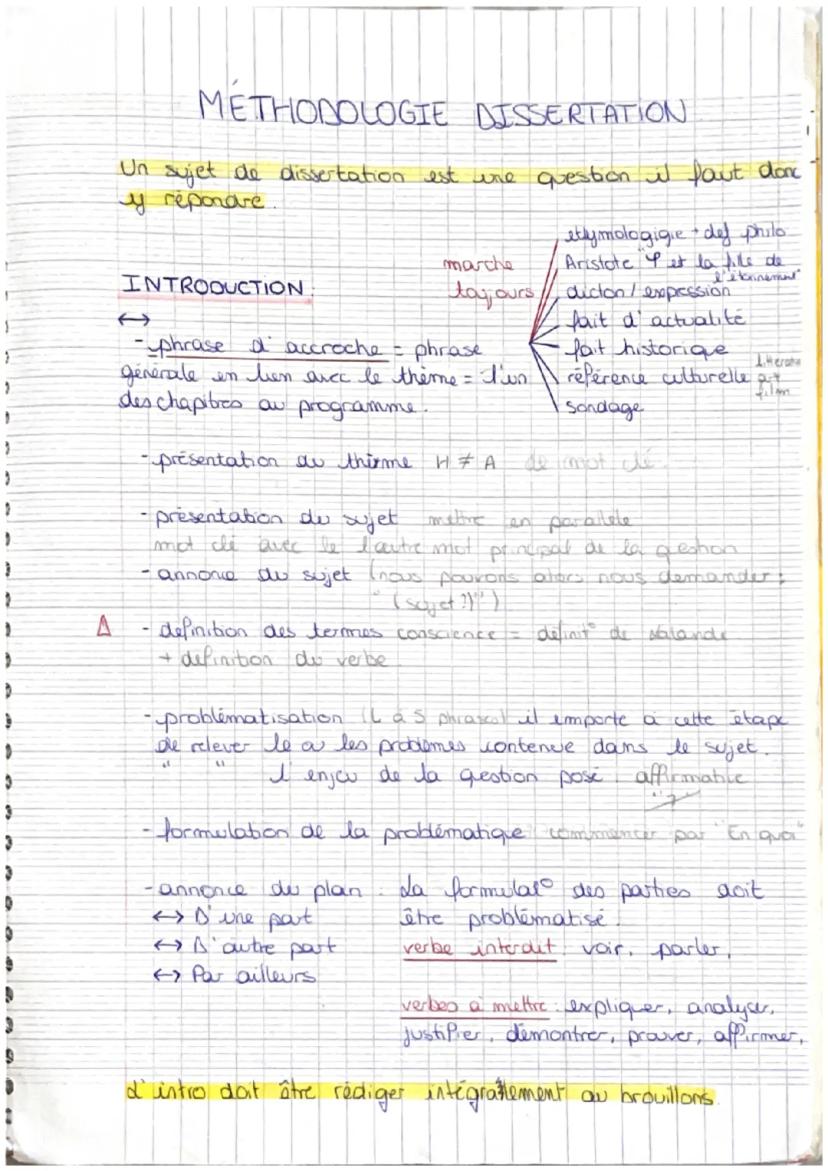 MÉTHODOLOGIE DISSERTATION
Un sujet de dissertation est une question il faut donc
y répondre.
INTRODUCTION:
marche
toujours
ethymologigie + def philo
Aristote "φ et la fille de
l'étonnement"
dicton / expession
fait d'actualité
fait historique
référence culturelle
art
film
sondage
↔
- phrase d'accroche = phrase
générale en lien avec le thème = l'un
des chapitres au programme.
- présentation du thème H ≠ A de mot clé.
- présentation du sujet mettre en parallèle
mot clé avec le l'autre mot principal de la question
- annonce du sujet (nous pouvons alors nous demander :
" (sujet ?)")
Δ - definition des termes conscience = définit° de
+ definition du verbe
- problématisation (4 à 5 phrases) il emporte à cette étape
de relever le ou les problèmes contenue dans le sujet.
" " l'enjeu de la question posé. affirmable
"?"
- formulation de la problématique commencer par "En quoi"
- annonce du plan : La formulat° des parties doit
être problématisé.
↔ D'une part
↔ D'autre part
↔ Par ailleurs
verbe interdit : voir, parler,
verbes à mettre : expliquer, analyser,
justifier, démontrer, prouver, affirmer,
L'intro doit être rédiger intégralement au brouillons.